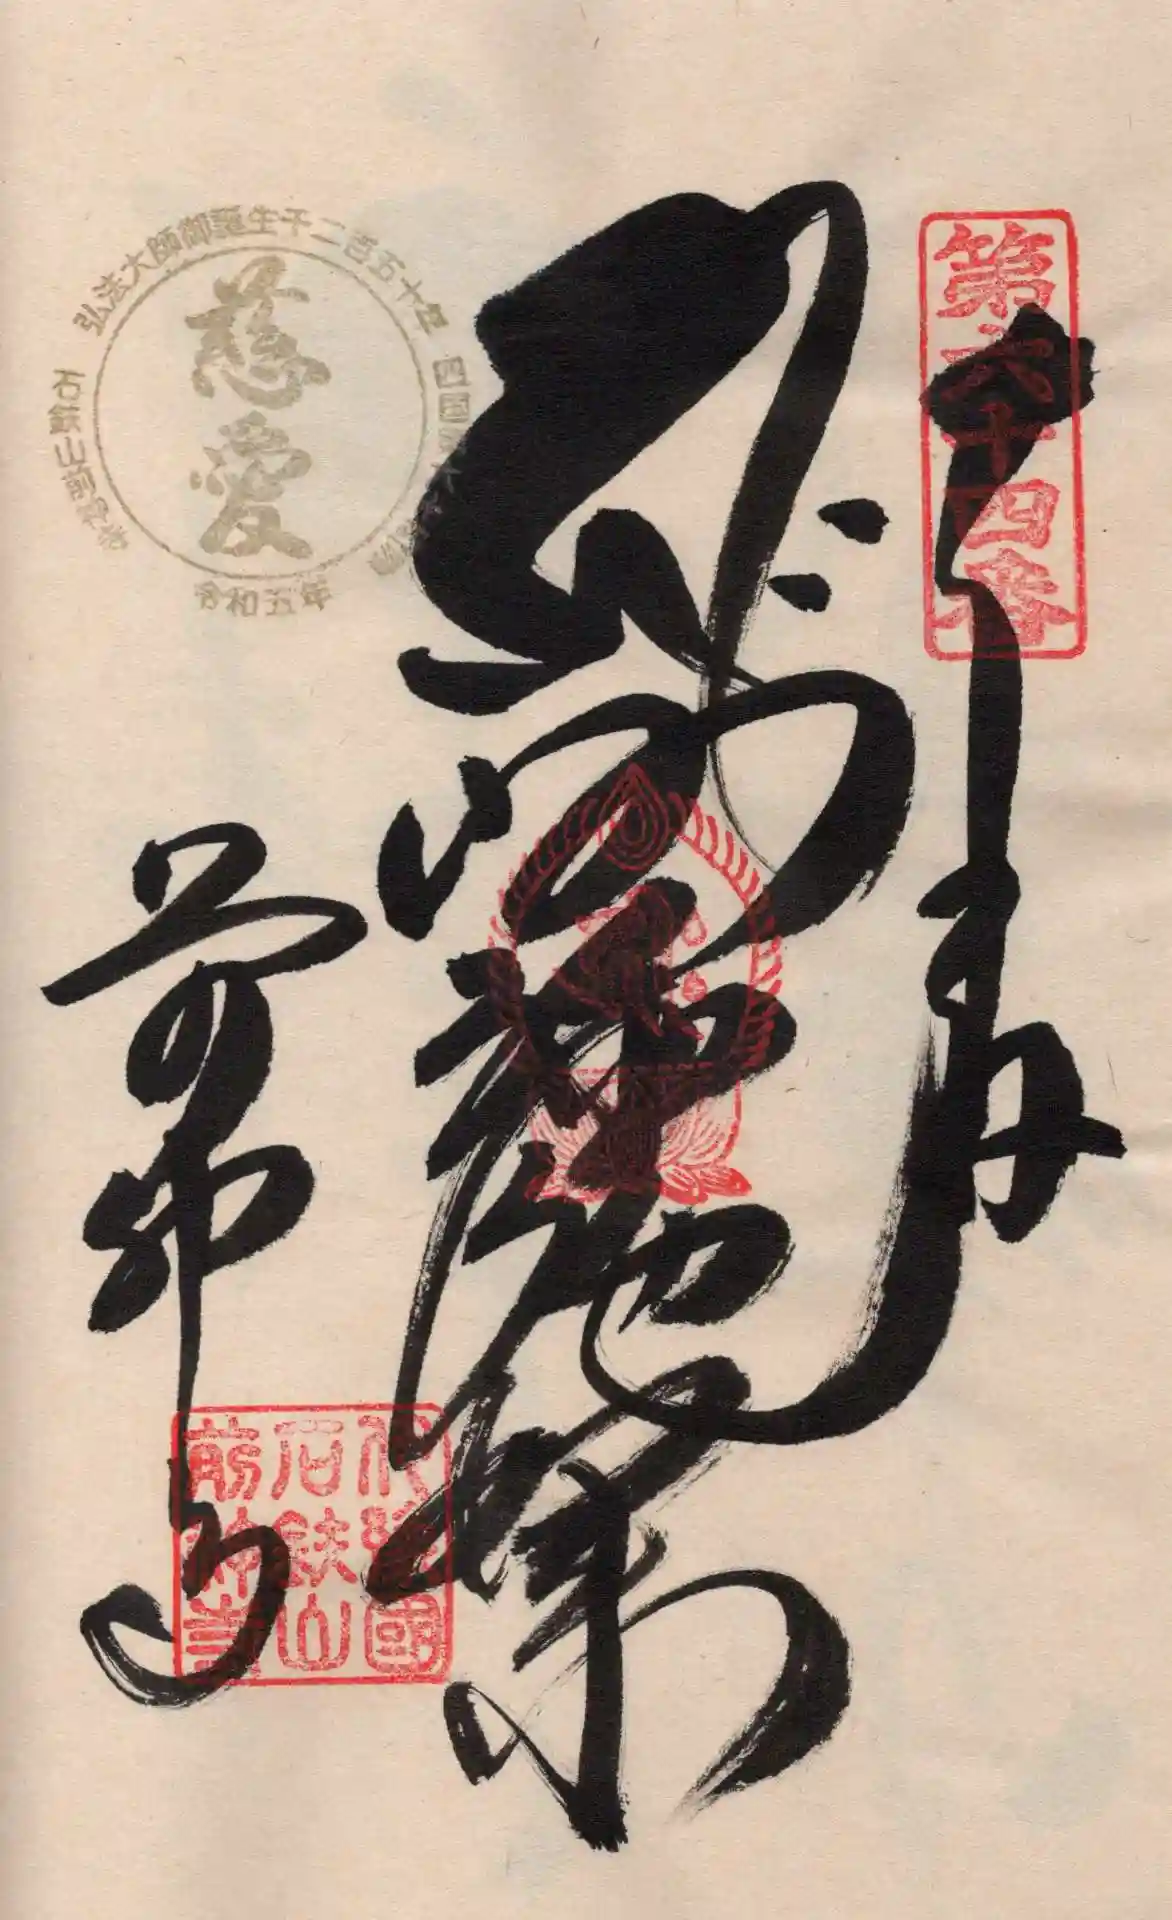 第六十四番
阿弥陀如来
前神寺
伊豫國
石鉄山
前神寺
弘法大師御誕生千二百五十年
四国
石鉄山前神寺
慈愛
令和五年